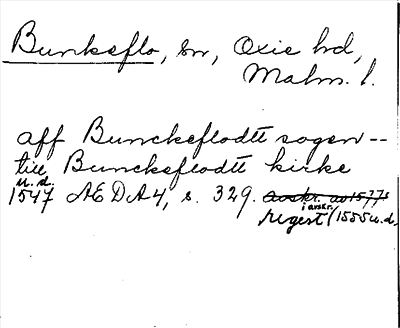 Bunkeflo, sn, Oxie hd,
Malm. l.
aff Bunckeflodtt sogen --
till Bunckeflodtt kirke
u.d.
1547 AEDA4, s. 329. avskr. av 1577s
i avskr.
regest (1555 u.d.